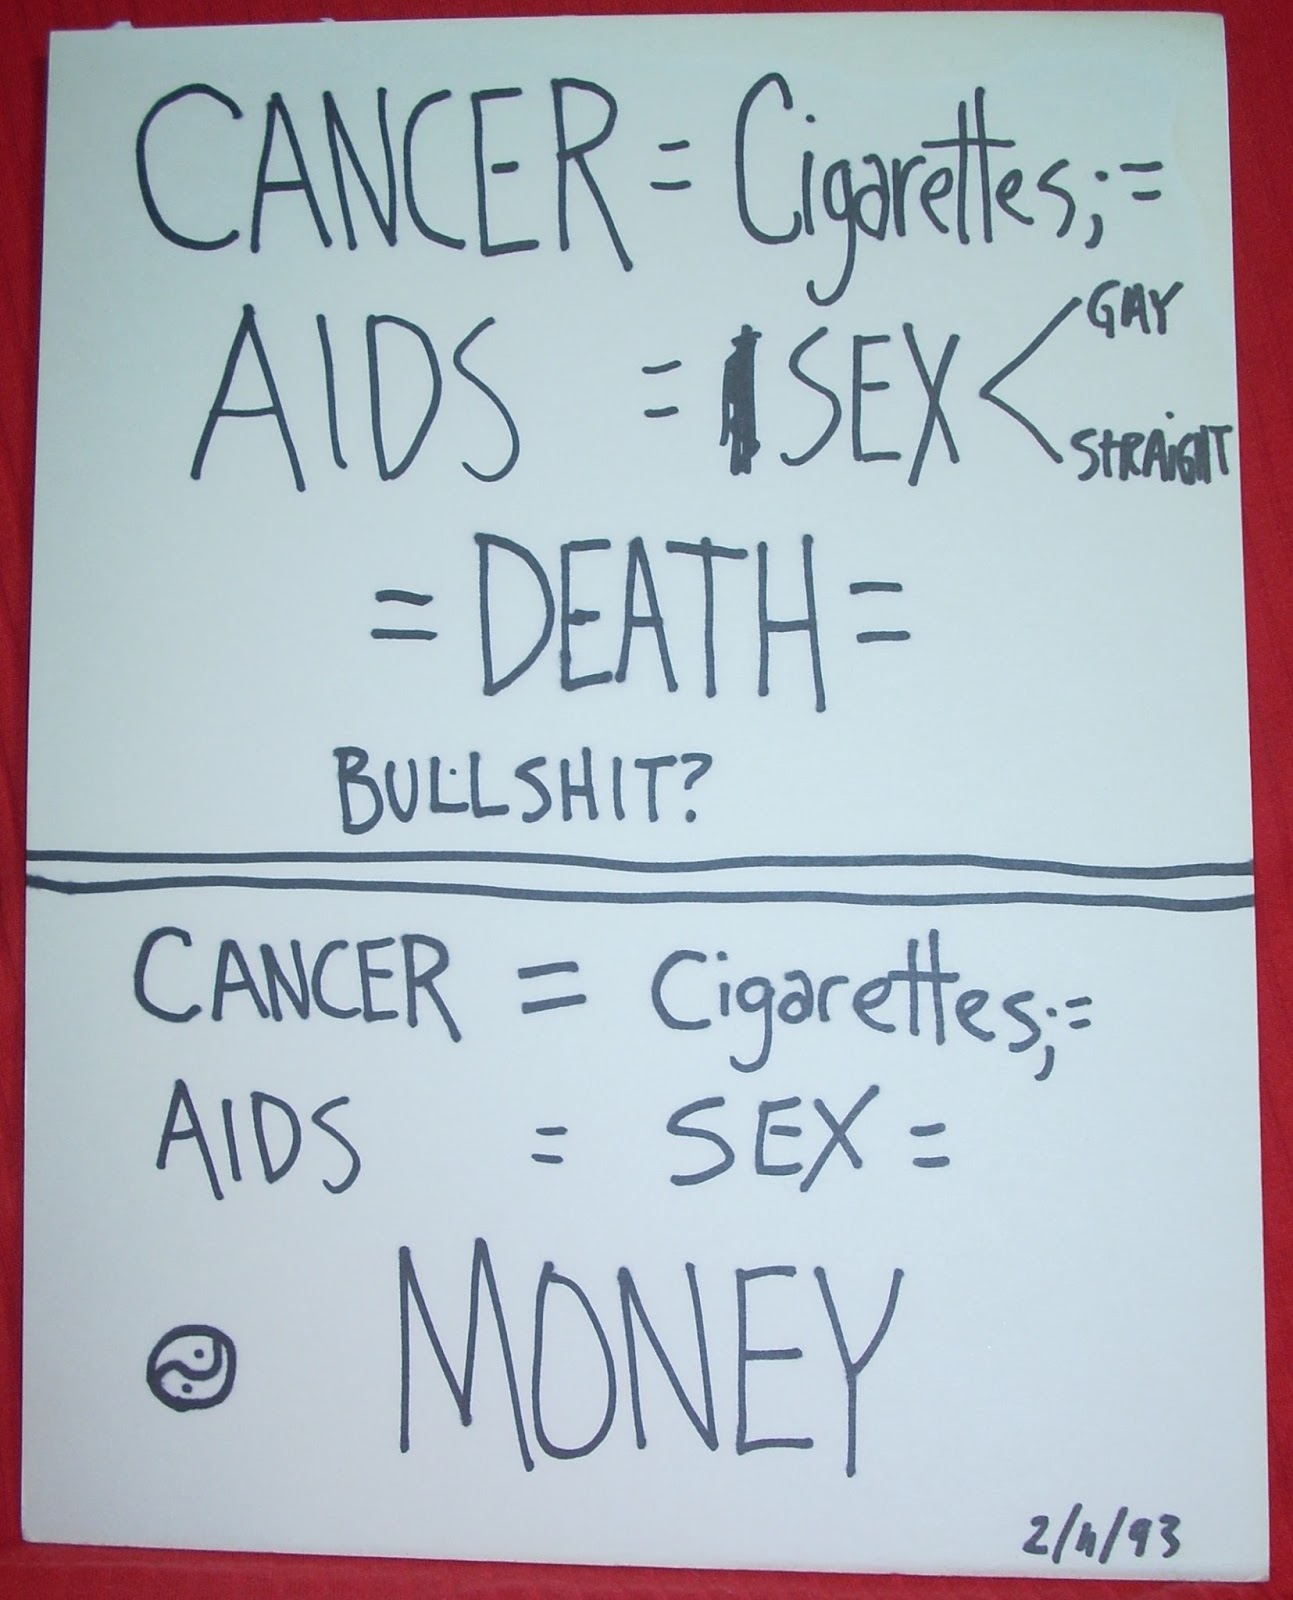 CANCER = Cigarettes; =
AIDS = SEX < GAY
STRAIGHT
= DEATH =
BULLSHIT?
CANCER = Cigarettes; =
AIDS = SEX =
MONEY
2/4/93